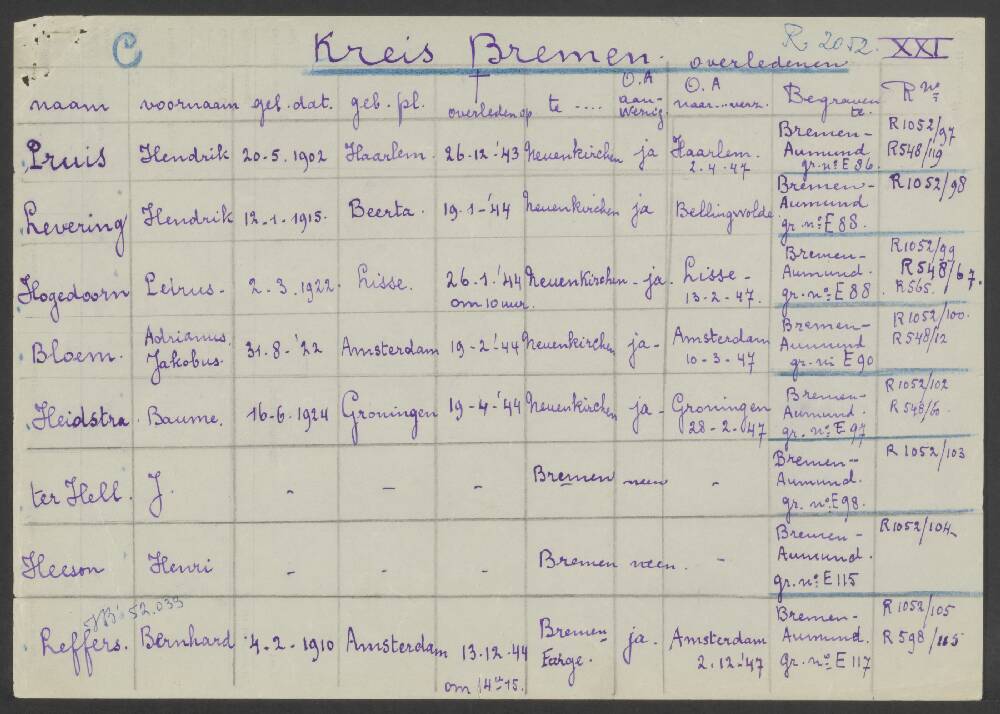 C Kreis Bremen. overledenen R 2052. XXI
naam voornaam geb. dat. geb. pl. † overleden op te .... O.A aanwezig. O.A naar verz. Begraven te. R no
Pruis Hendrik 20-5.1902 Haarlem. 26-12-'43 Neuenkirchen ja Haarlem. 2.4.'47 Bremen- Aumund gr. no E 86. R1052/97 R548/119
Levering Hendrik 12-1-1915. Beerta. 19-1-'44 Neuenkirchen ja Bellingwolde Bremen- Aumund gr. no E 88. R1052/98
Hogedoorn Petrus- 2-3.1922. Lisse. 26-1-'44 om 10 uur. Neuenkirchen - ja. Lisse- 13-2-'47. Bremen- Aumund. gr. no E 88 R1052/99 R548/67. R565.
Bloem. Adrianus. Jakobus. 31.8-'22 Amsterdam 19-2-'44 Neuenkirchen ja- Amsterdam 10-3-'47 Bremen- Aumund gr. no E 90 R1052/100. R548/12
Heidstra. Baume. 16-6.1924 Groningen 19-4-'44 Neuenkirchen ja- Groningen 28-2-'47 Bremen- Aumund. gr. no E 97 R1052/102 R548/60.
ter Hell. J. - - - Bremen neen - Bremen- Aumund. gr. no E 98. R1052/103
Heeson Henri - - - Bremen neen. - Bremen- Aumund. gr. no E 115 R1052/104
52.033
Leffers. Bernhard 4-2-1910 Amsterdam 13.12-'44 om 14 15. Bremen Farge. ja. Amsterdam 2.12-'47 Bremen- Aumund. gr. no E 117 R1052/105 R598/115